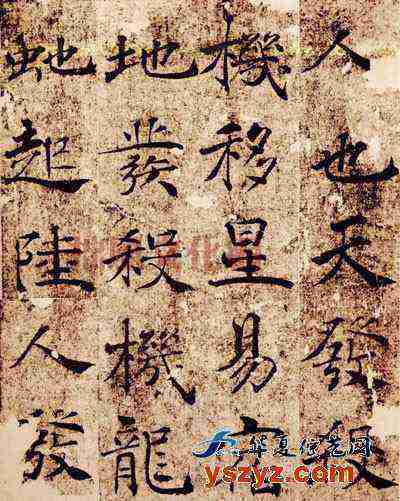 人也天發殺
機移星易宿
地發殺機龍
虵起陸人發
yszyz.com